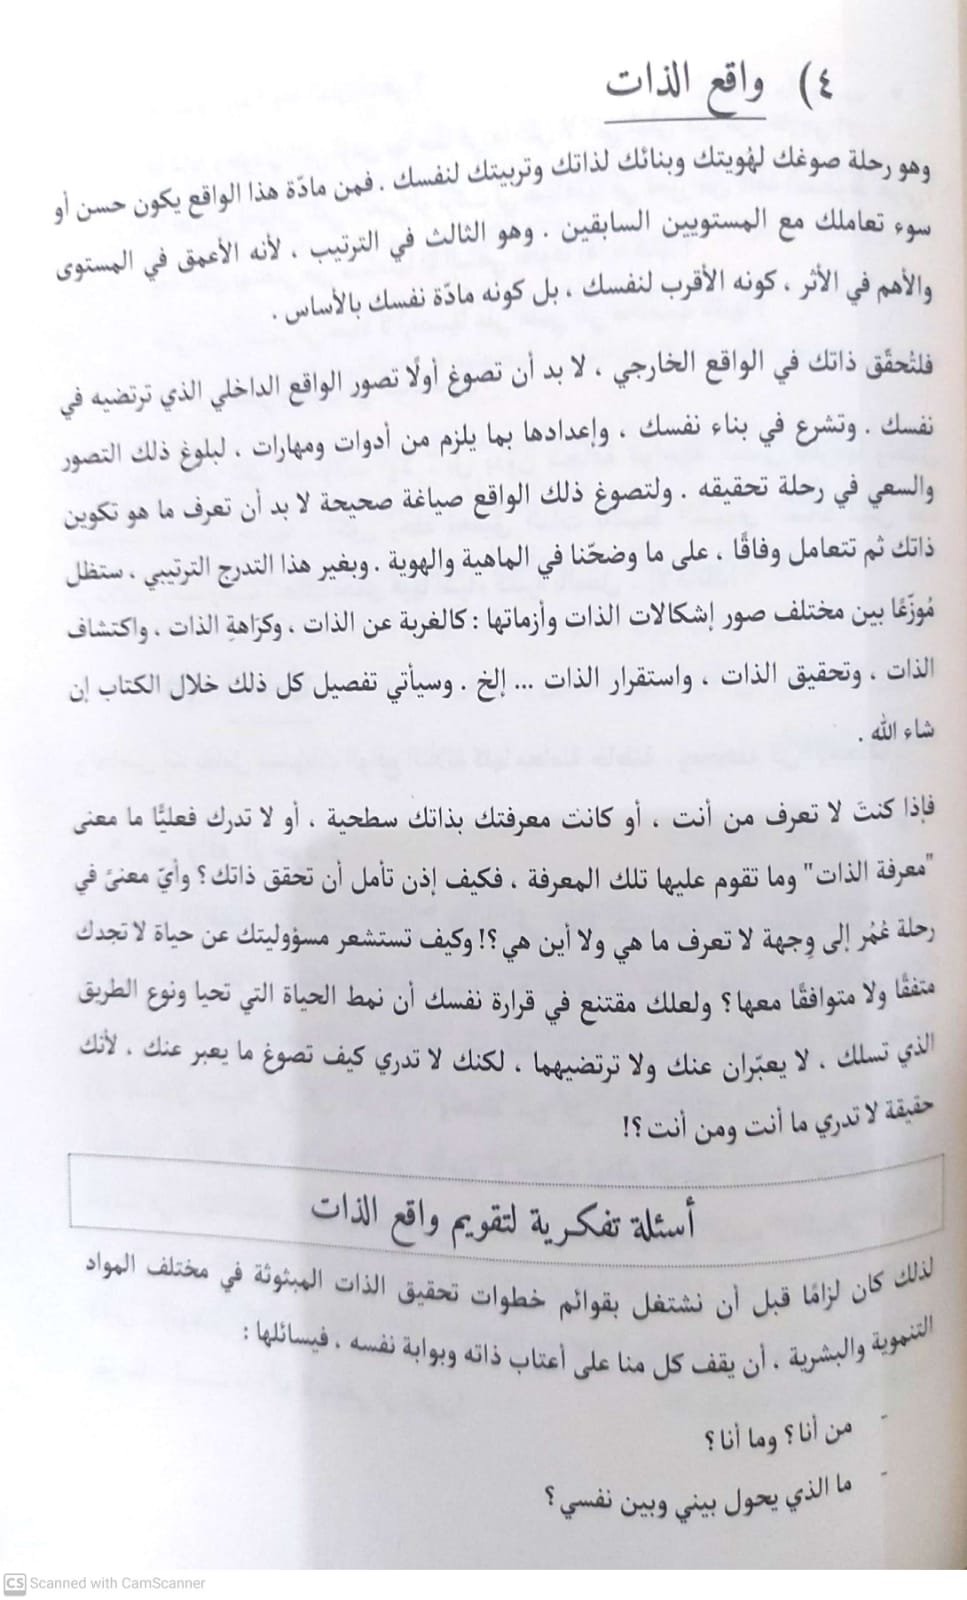 ٤) واقع الذات
وهو رحلة صوغك لهُويتك وبنائك لذاتك وتربيتك لنفسك . فمن مادّة هذا الواقع يكون حسن أو
سوء تعاملك مع المستويين السابقين . وهو الثالث في الترتيب ، لأنه الأعمق في المستوى
والأهم في الأثر ، كونه الأقرب لنفسك ، بل كونه مادّة نفسك بالأساس .
فلتُحقّق ذاتك في الواقع الخارجي ، لا بد أن تصوغ أولًا تصور الواقع الداخلي الذي ترتضيه في
نفسك . وتشرع في بناء نفسك ، وإعدادها بما يلزم من أدوات ومهارات ، لبلوغ ذلك التصور
والسعي في رحلة تحقيقه . ولتصوغ ذلك الواقع صياغة صحيحة لا بد أن تعرف ما هو تكوين
ذاتك ثم تتعامل وفاقًا ، على ما وضحّنا في الماهية والهوية . وبغير هذا التدرج الترتيبي ، ستظل
مُوزّعًا بين مختلف صور إشكالات الذات وأزماتها : كالغربة عن الذات ، وكرَاهةِ الذات ، واكتشاف
الذات ، وتحقيق الذات ، واستقرار الذات ... إلخ . وسيأتي تفصيل كل ذلك خلال الكتاب إن
شاء الله .
فإذا كنتَ لا تعرف من أنت ، أو كانت معرفتك بذاتك سطحية ، أو لا تدرك فعليًّا ما معنى
"معرفة الذات" وما تقوم عليها تلك المعرفة ، فكيف إذن تأمل أن تحقق ذاتك؟ وأيّ معنىً في
رحلة عُمُر إلى وِجهة لا تعرف ما هي ولا أين هي؟! وكيف تستشعر مسؤوليتك عن حياة لا تجدك
متفقًا ولا متوافقًا معها؟ ولعلك مقتنع في قرارة نفسك أن نمط الحياة التي تحيا ونوع الطريق
الذي تسلك ، لا يعبّران عنك ولا ترتضيهما ، لكنك لا تدري كيف تصوغ ما يعبر عنك ، لأنك
حقيقة لا تدري ما أنت ومن أنت؟!
أسئلة تفكرية لتقويم واقع الذات
لذلك كان لزامًا قبل أن نشتغل بقوائم خطوات تحقيق الذات المبثوثة في مختلف المواد
التنموية والبشرية ، أن يقف كل منا على أعتاب ذاته وبوابة نفسه ، فيسائلها :
- من أنا؟ وما أنا؟
- ما الذي يحول بيني وبين نفسي؟
CS Scanned with CamScanner